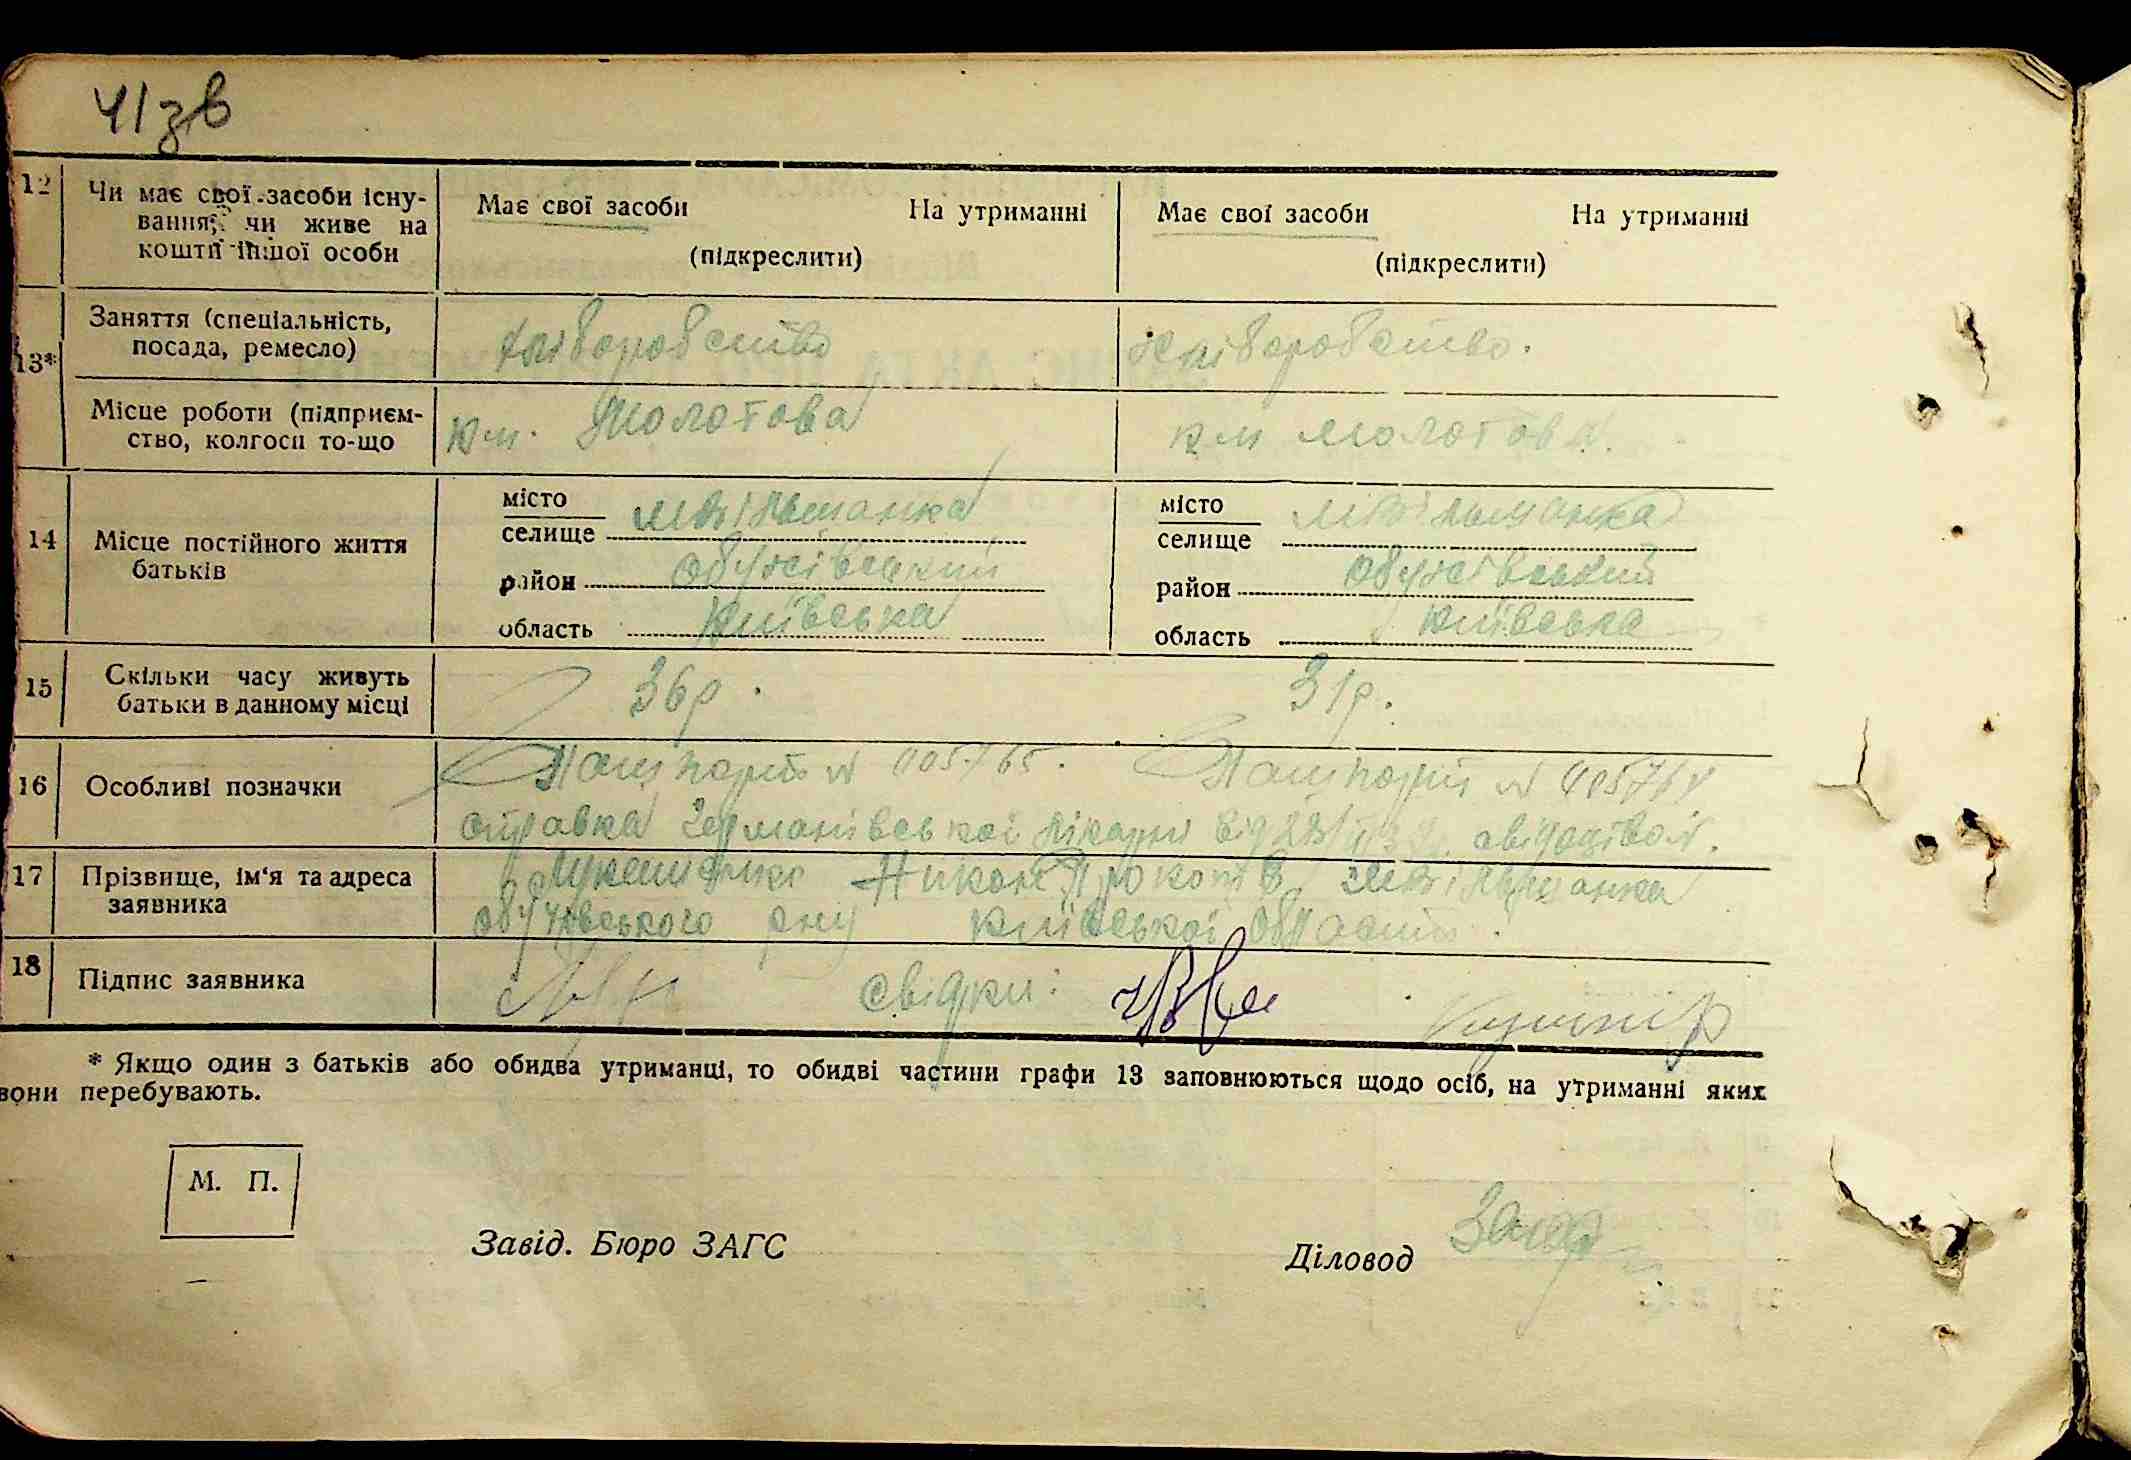 41зв
12 Чи має свої засоби існу- Має свої засоби На утриманні Має свої засоби На утриманні
вання, чи живе на
кошти іншої особи (підкреслити) (підкреслити)
Заняття (спеціальність, хліборобство хліборобство.
13* посада, ремесло)
Місце роботи (підприєм- км. Молотова км Молотова.
ство, колгосп то-що
місто місто
селище селище
14 Місце постійного життя район Обухівський район Обухівський
батьків
область Київська область Київська
15 Скільки часу живуть 36р. 31р.
батьки в данному місці
16 Особливі позначки Пашпорт N Пашпорт N
справка Германівської лікарні від
17 Прізвище, ім'я та адреса Прокопів
заявника Обухівського рну Київської області.
18 Підпис заявника свідки: Кушнір
* Якщо один з батьків або обидва утриманці, то обидві частини графи 13 заповнюються щодо осіб, на утриманні яких
вони перебувають.
М. П.
Завід. Бюро ЗАГС Діловод